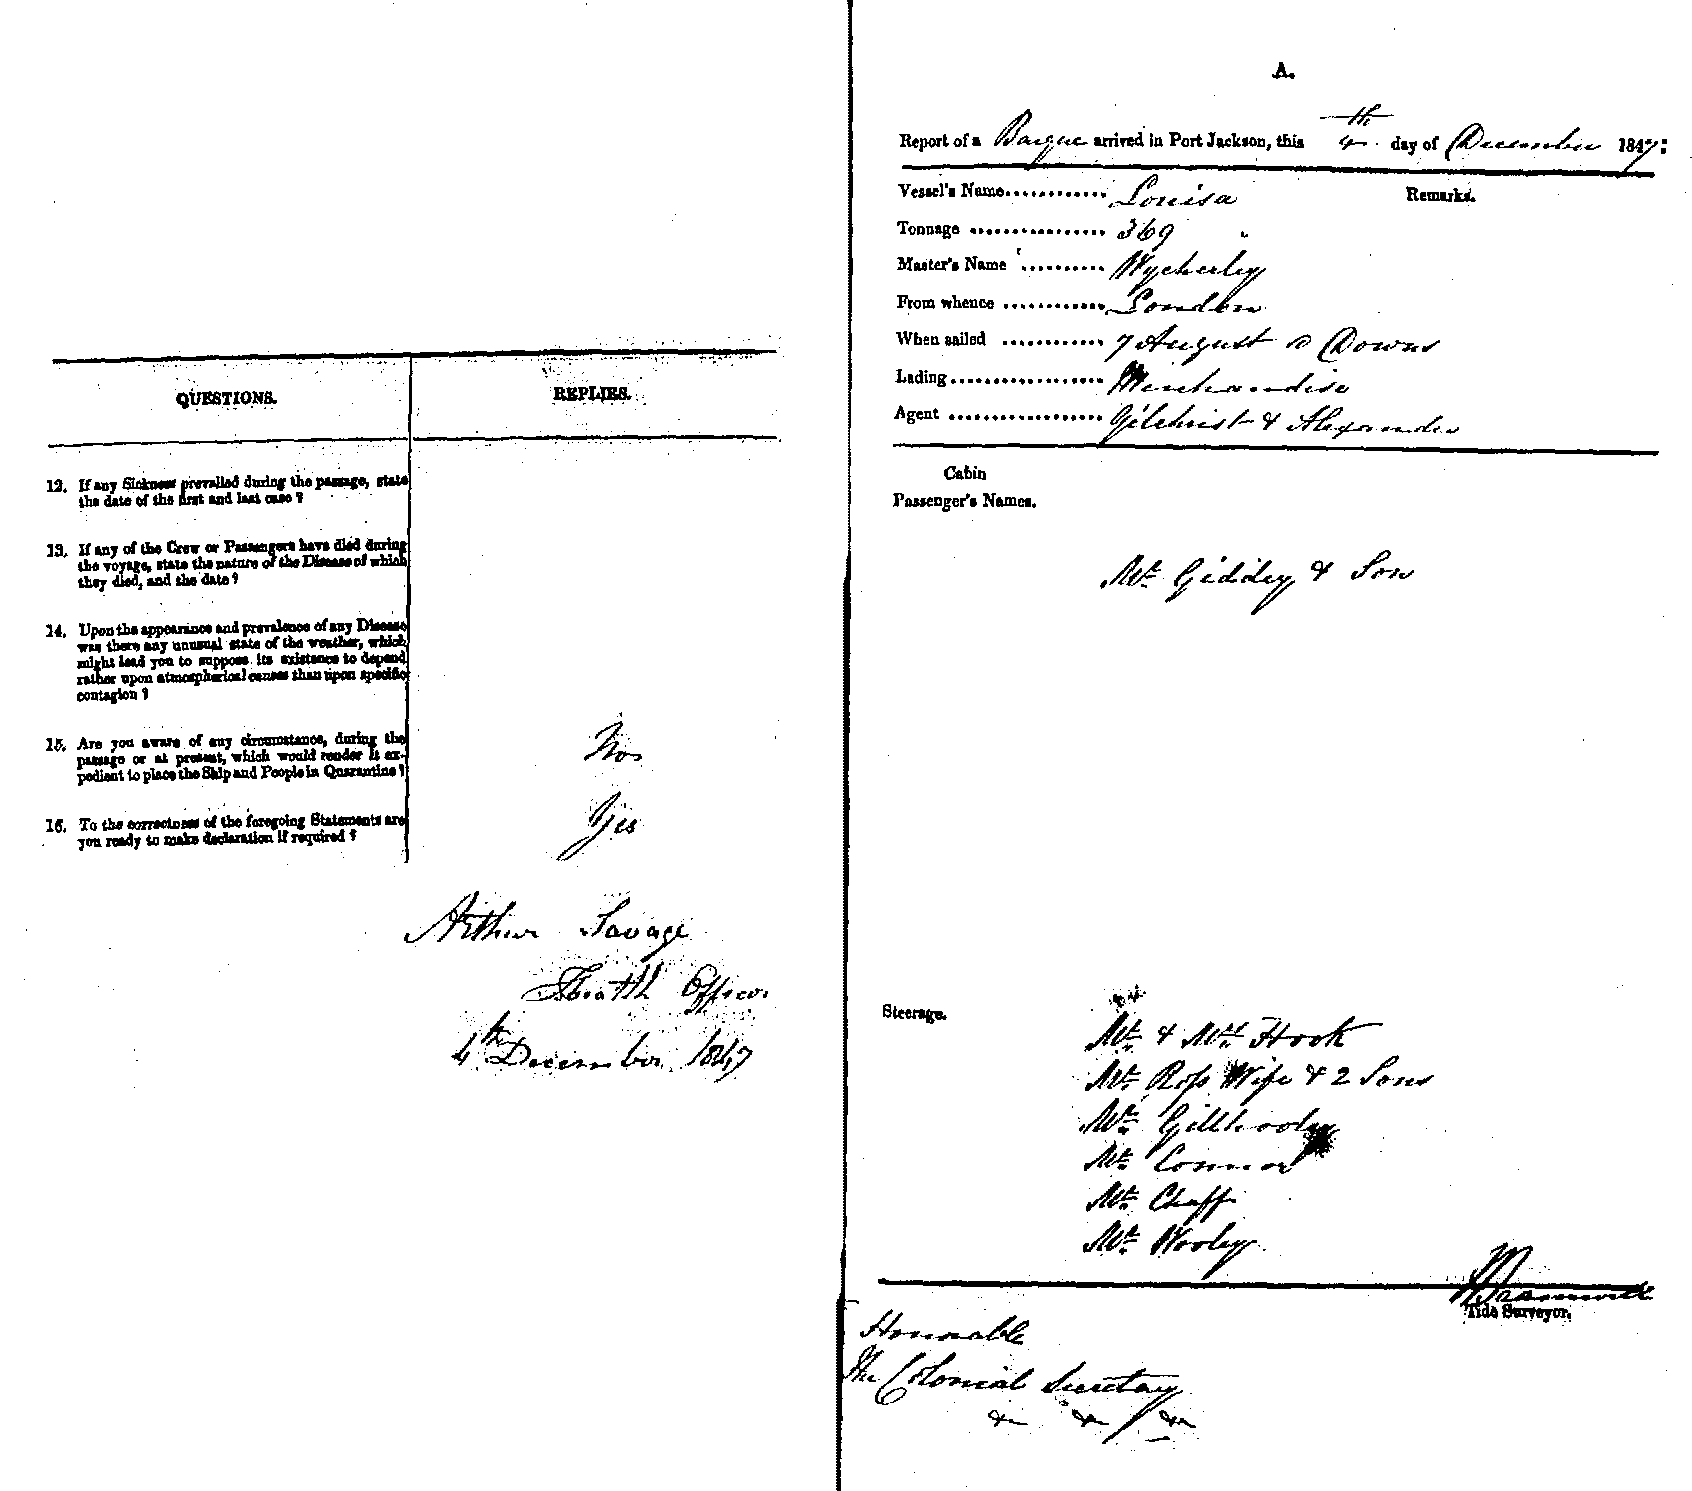 QUESTIONS.
REPLIES.
12. If any Sickness prevailed during the passage, state
the date of the first and last case ?
13. If any of the Crew or Passengers have died during
the voyage, state the nature of the Disease of which
they died, and the date ?
14. Upon the appearance and prevalence of any Disease
was there any unusual state of the weather, which
might lead you to suppose its existence to depend
rather upon atmospherical causes than upon specific
contagion ?
15. Are you aware of any circumstance, during the
passage or at present, which would render it ex-
pedient to place the Ship and People in Quarantine ?
No.
16. To the correctness of the foregoing Statements are
you ready to make declaration if required ?
Yes
Arthur Savage
Health Officer
4th December 1847
A.
Report of a Barque arrived in Port Jackson, this 4th day of December 1847:
Vessel's Name Louisa
Remarks.
Tonnage 369
Master's Name Wycherley
From whence London
When sailed 7 August Downs
Lading Merchandise
Agent Gilchrist & Alexander
Cabin
Passenger's Names.
Mr Giddey & Son
Steerage.
Mr & Mrs Hook
Mr Ross Wife & 2 Sons
Mr Gillhooley
Mr Connor
Mr Chaff
Mr Wooley
Tide Surveyor.
Honorable
The Colonial Secretary
&c &c &c